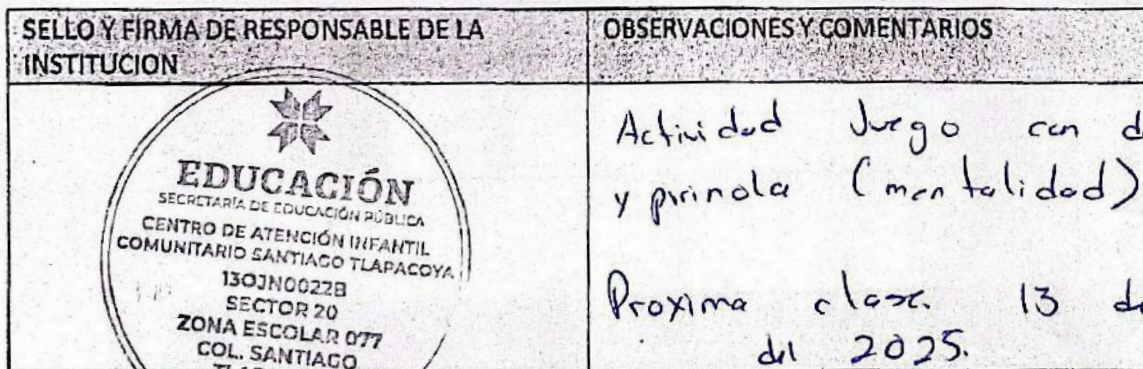 SELLO Y FIRMA DE RESPONSABLE DE LA
INSTITUCION
OBSERVACIONES Y COMENTARIOS
EDUCACIÓN
SECRETARÍA DE EDUCACIÓN PÚBLICA
CENTRO DE ATENCIÓN INFANTIL
COMUNITARIO SANTIAGO TLAPACOYA
13OJN0022B
SECTOR 20
ZONA ESCOLAR 077
COL. SANTIAGO
Actividad Juego con d
y pirinola (mentalidad)
Proxima clase. 13 de
del 2025.